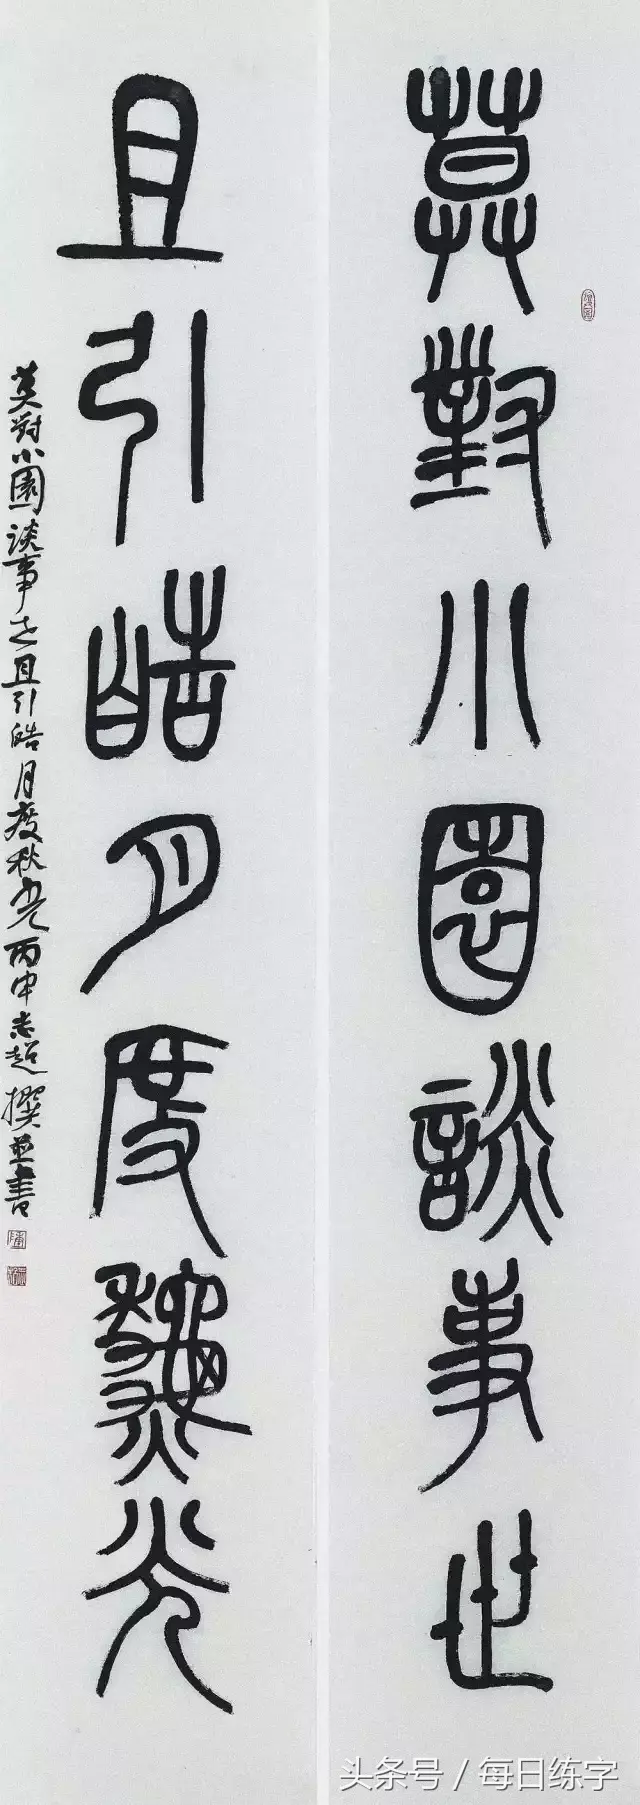 莫對小園談事世
且引皓月度秋光
莫對小園談事世且引皓月度秋光丙申志超撰並書
头条号 / 每日练字